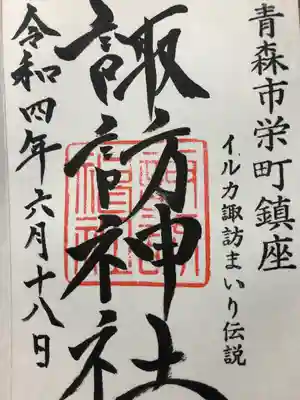 青森市栄町鎮座
イルカ諏訪まいり伝説
諏訪神社
令和四年六月十八日